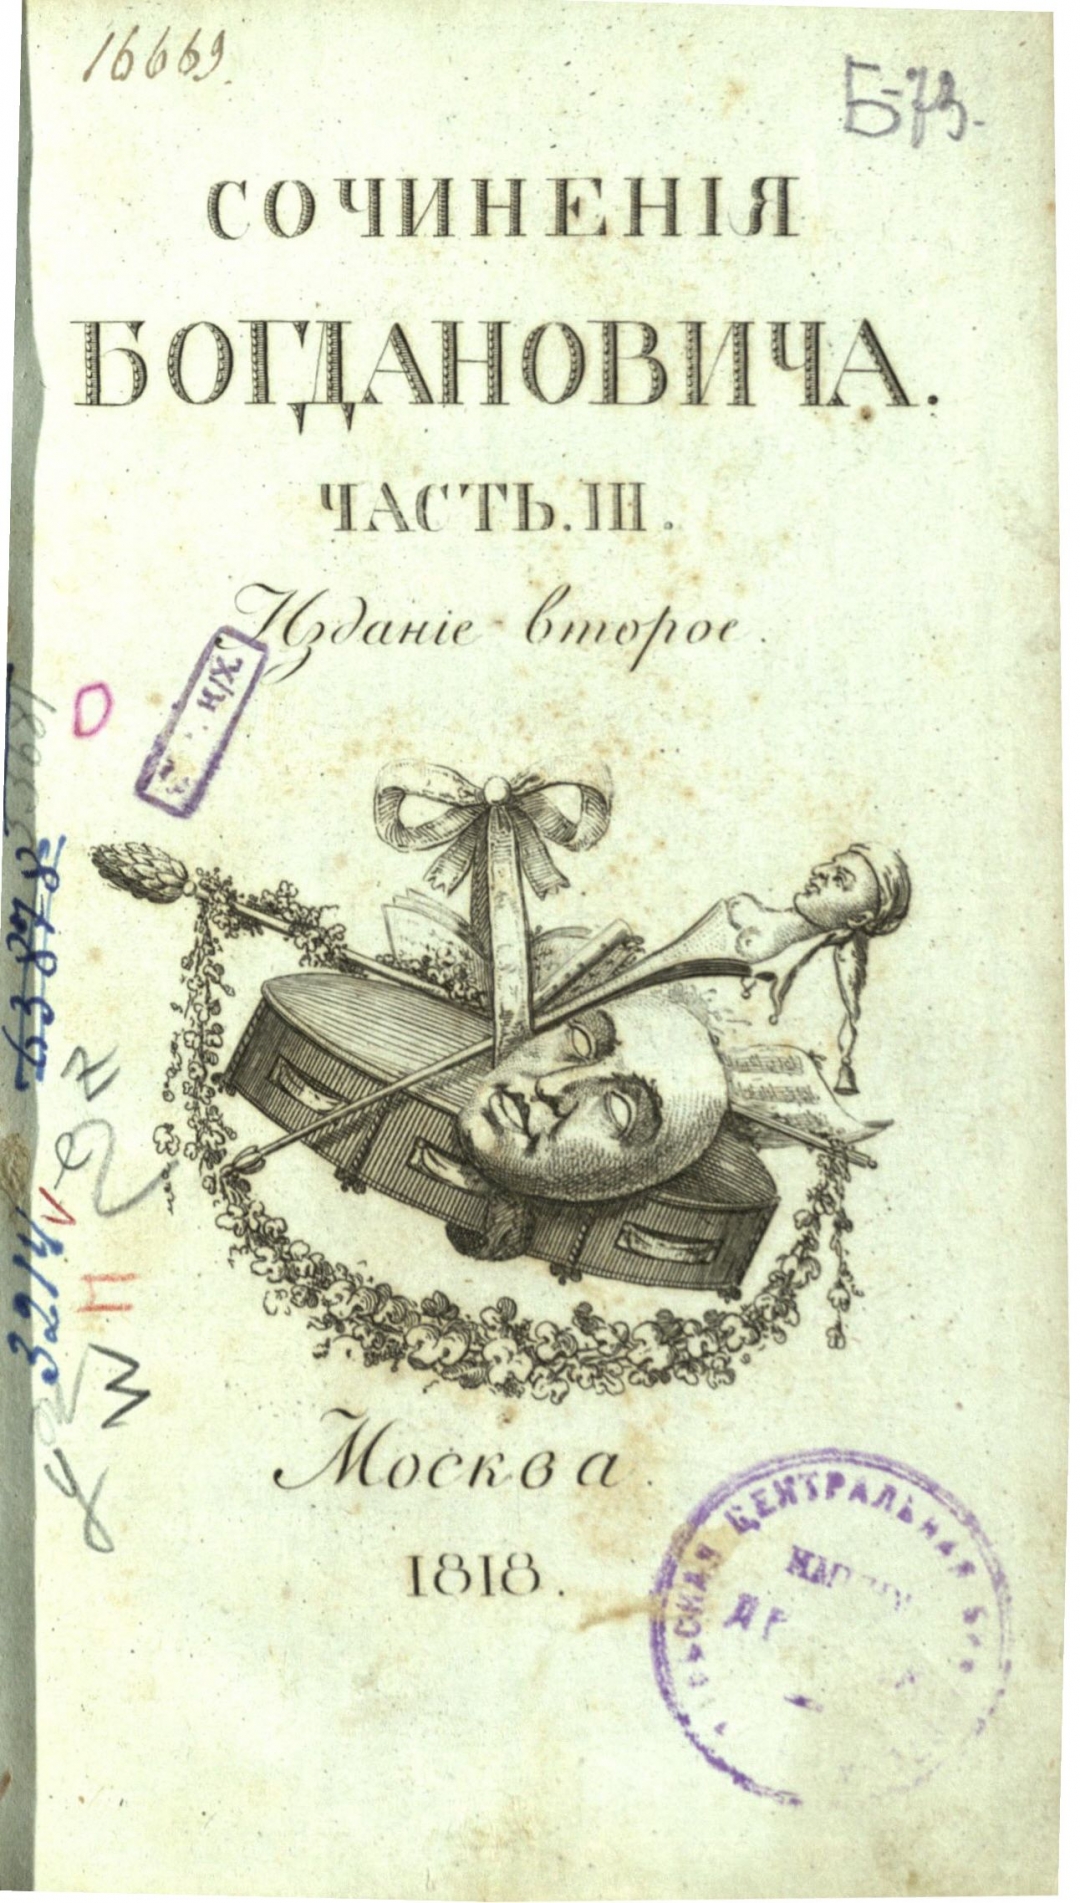 16669
Б-73.
СОЧИНЕНІЯ
БОГДАНОВИЧА.
ЧАСТЬ.III.
Изданіе второе.
Н/Х
63878
3214
Москва.
1818.
ЦЕНТРАЛЬНАЯ